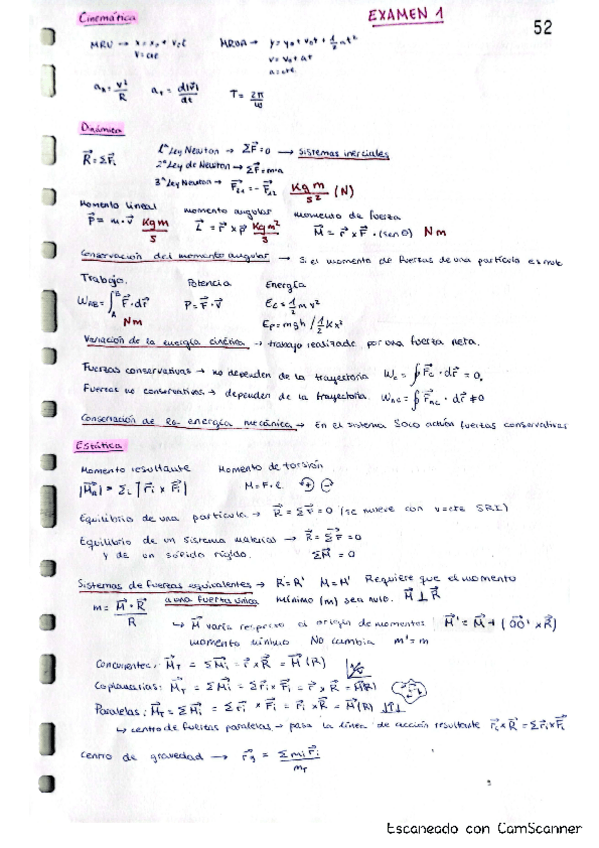 EXAMEN 1
52
Cinemática
MRU → x = x₀ + v₀t
v = cte
MRUA → y = y₀ + v₀t + 1/2 at²
v = v₀ + at
a = cte
aₙ = v²/R   aₜ = d|v⃗|/dt   T = 2π/ω
Dinámica
R⃗ = ΣF⃗ᵢ
1ª Ley Newton → ΣF⃗ = 0 → sistemas inerciales
2ª Ley de Newton → ΣF⃗ = m·a
3ª Ley Newton → F⃗₂₁ = - F⃗₁₂   Kg m/s² (N)
Momento lineal   momento angular   momento de fuerza
P⃗ = m · v⃗   Kg m/s   L⃗ = r⃗ × p⃗   Kg m²/s   M⃗ = r⃗ × F⃗ · (sen θ)   Nm
Conservación del momento angular → Si el momento de fuerzas de una partícula es nulo
Trabajo.   Potencia   Energía
W_AB = ∫_A^B F⃗ · dr⃗   P = F⃗ · v⃗   Ec = 1/2 m v²
Nm   Ep = mgh / 1/2 Kx²
Variación de la energía cinética → trabajo realizado por una fuerza neta.
Fuerzas conservativas → no dependen de la trayectoria   Wc = ∮ F⃗c · dr⃗ = 0.
Fuerzas no conservativas → dependen de la trayectoria   Wnc = ∮ F⃗nc · dr⃗ ≠ 0
Conservación de la energía mecánica → En el sistema solo actúan fuerzas conservativas
Estática
Momento resultante   Momento de torsión
|M⃗R| = Σᵢ |r⃗ᵢ × F⃗ᵢ|   M = F · ℓ   + -
Equilibrio de una partícula → R⃗ = ΣF⃗ = 0 (se mueve con v=cte SRI)
Equilibrio de un sistema material → R⃗ = ΣF⃗ = 0
y de un sólido rígido.   ΣM⃗ = 0
Sistemas de fuerzas equivalentes → R = R'   M = M'   Requiere que el momento
m = M⃗ · R⃗ / R   a una fuerza única   mínimo (m) sea nulo. M⃗ ⊥ R⃗
↳ M⃗ varía respecto al origen de momentos: M⃗' = M⃗ + (OO⃗' × R⃗)
momento mínimo NO cambia   m' = m
Concurrentes: M⃗T = ΣM⃗ᵢ = r⃗ × R⃗ = M⃗(R)
Coplanarias: M⃗T = ΣM⃗ᵢ = Σr⃗ᵢ × F⃗ᵢ = r⃗ × R⃗ = M⃗(R)
Paralelas: M⃗T = ΣM⃗ᵢ = Σr⃗ᵢ × F⃗ᵢ = r⃗ × R⃗ = M⃗(R) ↓↑↓
↳ centro de fuerzas paralelas → pasa la línea de acción resultante   r⃗c × R⃗ = Σr⃗ᵢ × F⃗ᵢ
Centro de gravedad → r⃗g = Σmᵢr⃗ᵢ / mT
Escaneado con CamScanner